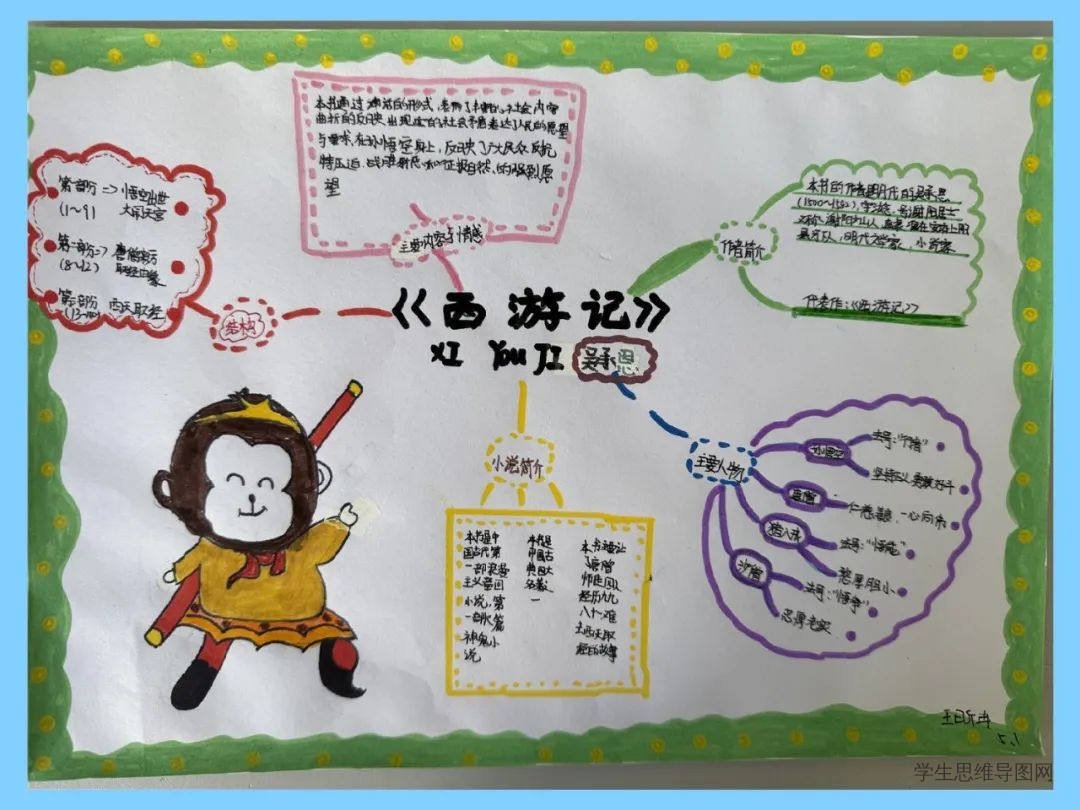 《西游记》
XI YOU JI
吴承恩
本书通过神话的形式,表师了丰富的社会内容
曲折的反映出现实的社会矛盾表达了人民的愿望
与要求,在孙悟空身上,反映了广大民众反抗
特压迫,战胜和征服自然,的强烈愿
望
主要内容与情感
第一部分 -> 悟空出世
(1~9) 大闹天宫
第二部分->
(8~12) 取经由缘
第三部分 西天取经
结构
作者简介
本书的作者是明代的吴承恩
(1500~1582),字汝忠,号射阳居士
代表作:《西游记》
小说简介
本书是中
国古代第
一部浪漫
主义章回
小说,第
一部长篇
神鬼小
说
本书是
中国古
典四大
名著
一
本书通过让
唐僧
师徒四人
经历九九
八十一难
去西天取
经的故事
主要人物
孙悟空
去号:"行者"
坚持正义 勇敢好斗
唐僧
仁慈善良,一心向佛
猪八戒
去号:"悟能"
憨厚胆小
沙僧
去号:"悟净"
忠厚老实
5.1
学生思维导图网